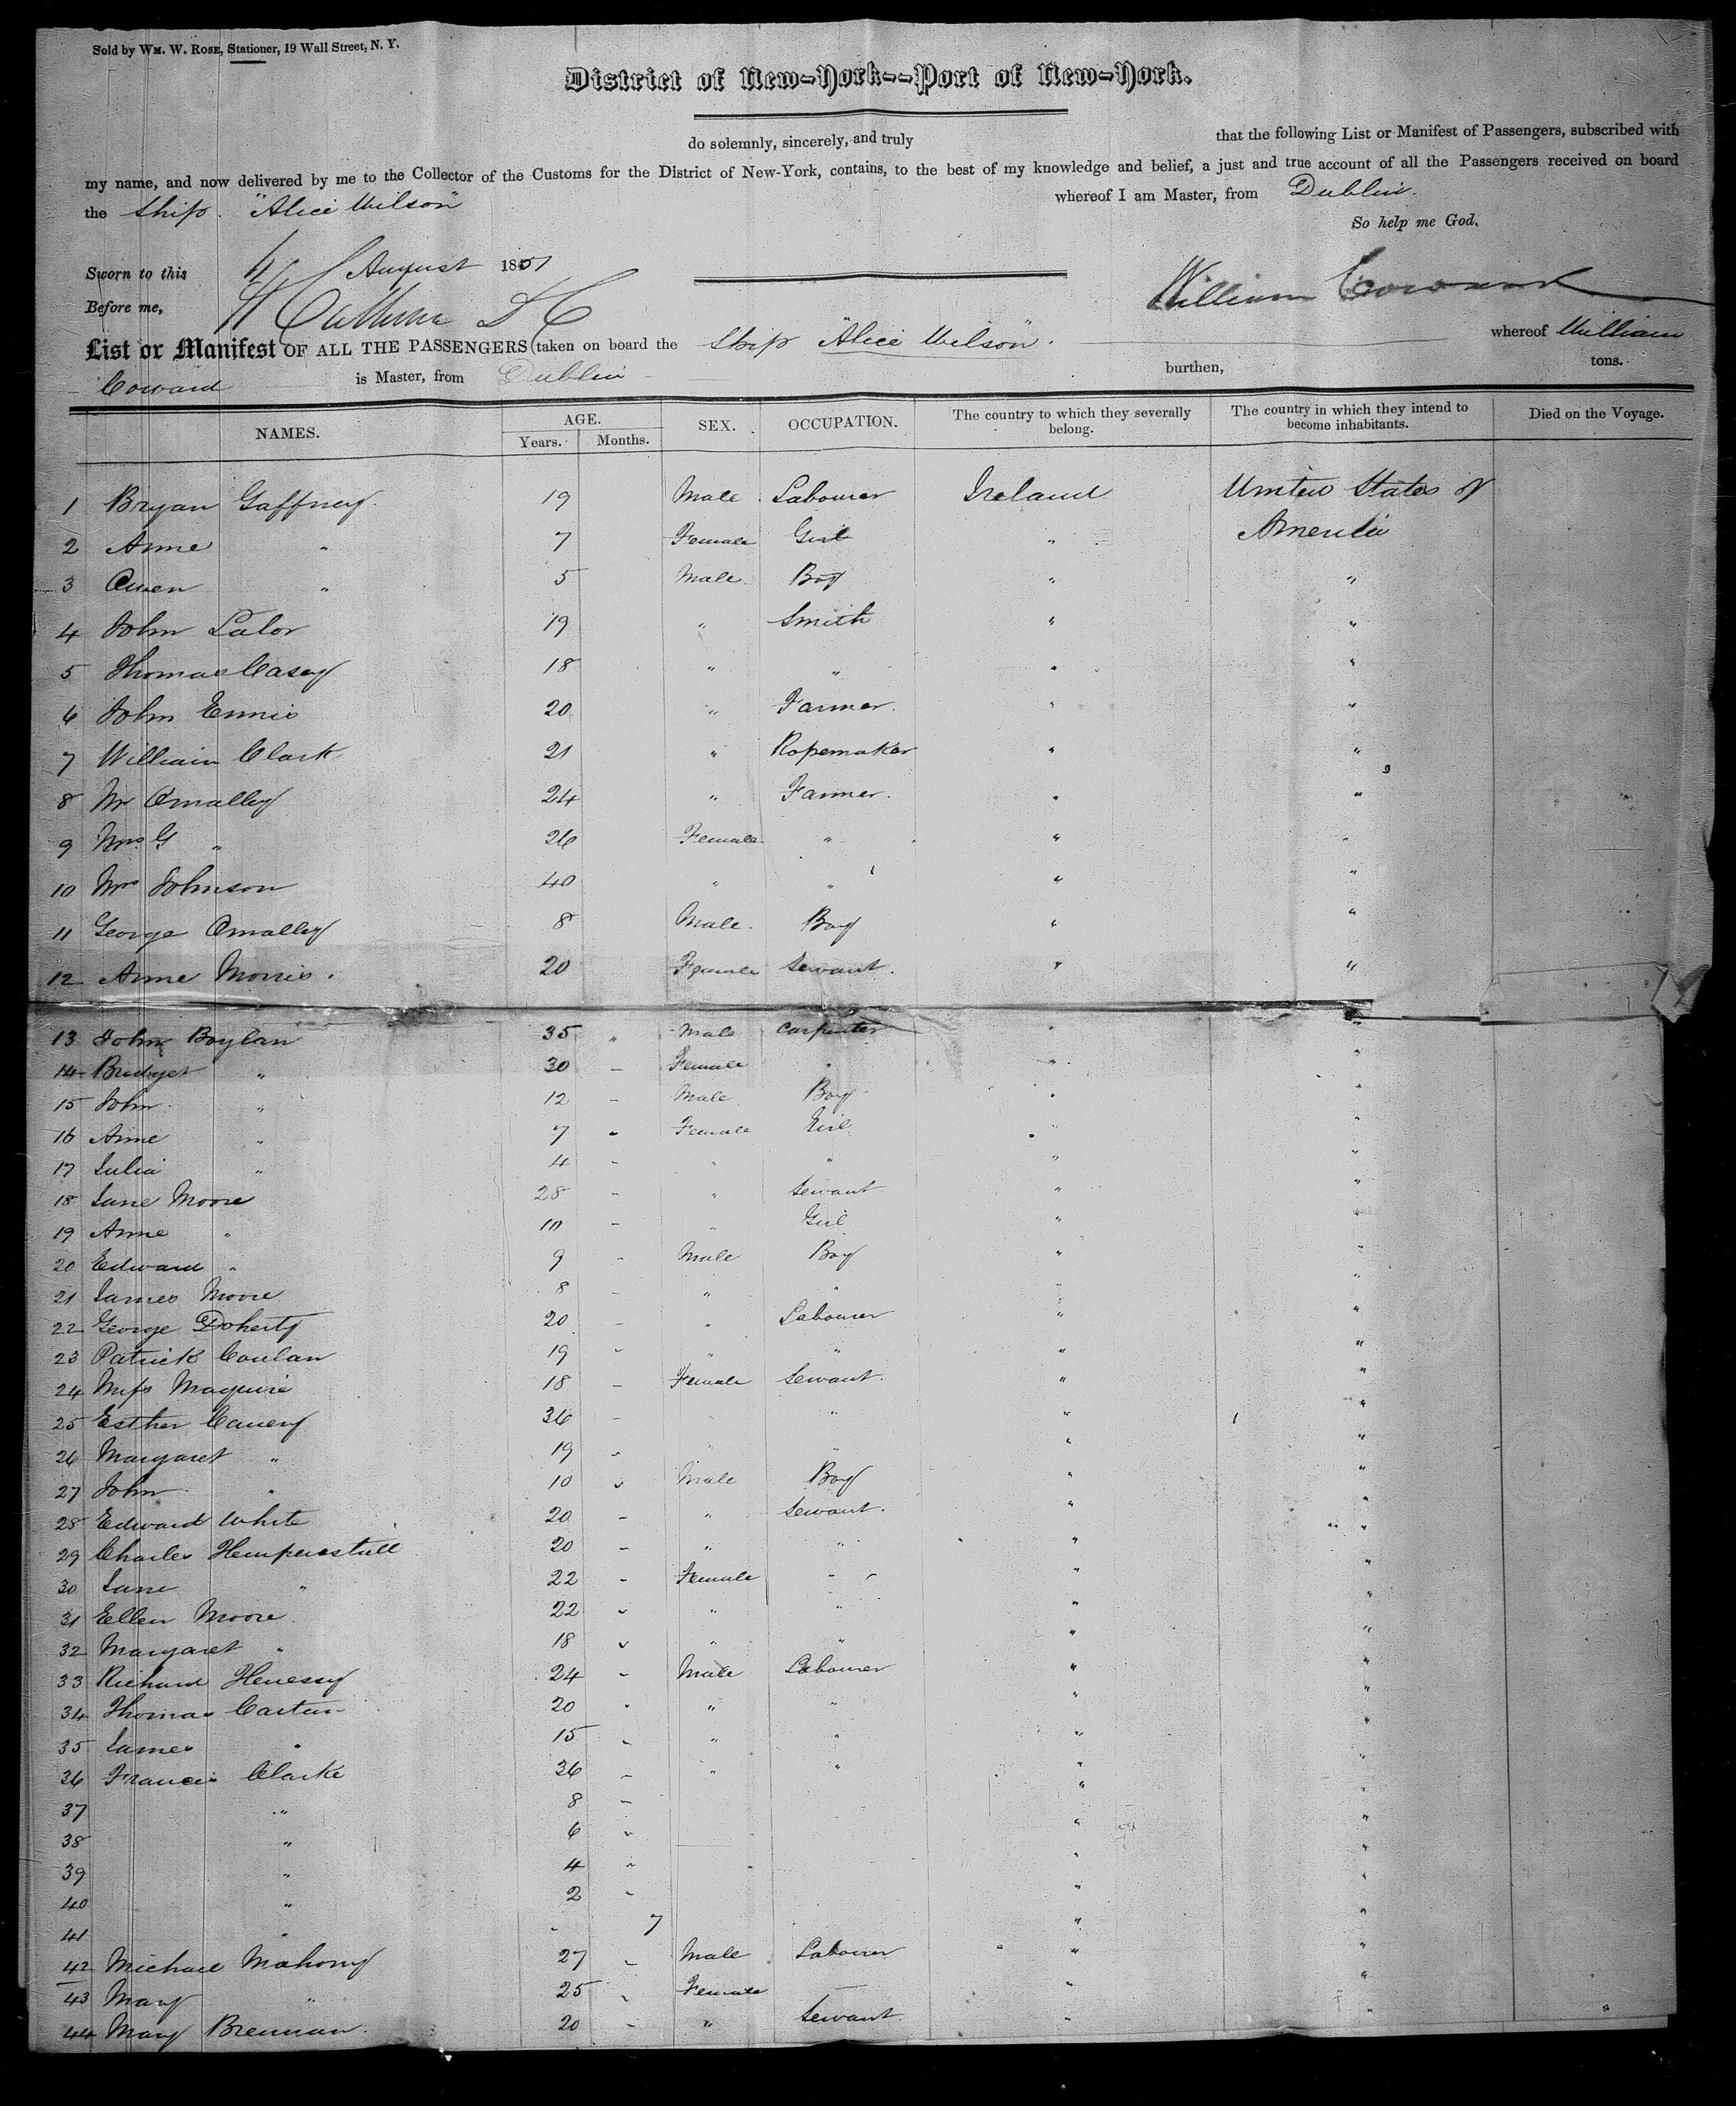 Sold by WM. W. ROSE, Stationer, 19 Wall Street, N. Y.
District of New-York--Port of New-York.
do solemnly, sincerely, and truly that the following List or Manifest of Passengers, subscribed with
my name, and now delivered by me to the Collector of the Customs for the District of New-York, contains, to the best of my knowledge and belief, a just and true account of all the Passengers received on board
the Ship. "Alice Wilson" whereof I am Master, from Dublin.
So help me God.
Sworn to this 4 August 1851
Before me, William Coward
List or Manifest OF ALL THE PASSENGERS taken on board the Ship "Alice Wilson". whereof William
Coward is Master, from Dublin burthen, tons.
NAMES. AGE. Years. Months. SEX. OCCUPATION. The country to which they severally belong. The country in which they intend to become inhabitants. Died on the Voyage.
1 Bryan Gaffney. 19 Male. Labourer Ireland United States of
2 Anne " 7 Female Girl " America
3 Owen " 5 Male. Boy " "
4 John Lalor 19 " Smith " "
5 Thomas Casey 18 " " " "
6 John Ennis 20 " Farmer. " "
7 William Clark 21 " Ropemaker " "
8 Mr Omalley 24 " Farmer. " "
9 Mrs G " 26 Female " " "
10 Mrs Johnson 40 " " " "
11 George Omalley 8 Male. Boy " "
12 Anne Morris. 20 Female Servant. " "
13 John Boylan 35 " Male Carpenter " "
14 Bridget " 30 - Female " " "
15 John " 12 - Male Boy " "
16 Anne " 7 - Female Girl " "
17 Julia " 4 - " " " "
18 Jane Moore 28 - " Servant " "
19 Anne " 10 - " Girl " "
20 Edward " 9 - Male Boy " "
21 James Moore 8 - " " " "
22 George Doherty 20 - " Labourer " "
23 Patrick Conlan 19 - " " " "
24 Miss Maguire 18 - Female Servant. " "
25 Esther Cavery 36 - " " " "
26 Margaret " 19 - " " " "
27 John " 10 - Male Boy " "
28 Edward White 20 - " Servant. " "
29 Charles Hempenstall 20 - " " " "
30 Jane " 22 - Female " " "
31 Ellen Moore 22 - " " " "
32 Margaret " 18 - " " " "
33 Richard Henessy 24 - Male Labourer " "
34 Thomas Carter 20 - " " " "
35 James " 15 - " " " "
36 Francis Clarke 36 - " " " "
37 " 8 - " "
38 " 6 - " "
39 " 4 - " "
40 " 2 - " "
41 " - 7 " "
42 Michael Mahony 27 - Male Labourer " "
43 Mary " 25 - Female — " "
44 Mary Brennan. 20 - " Servant. " "